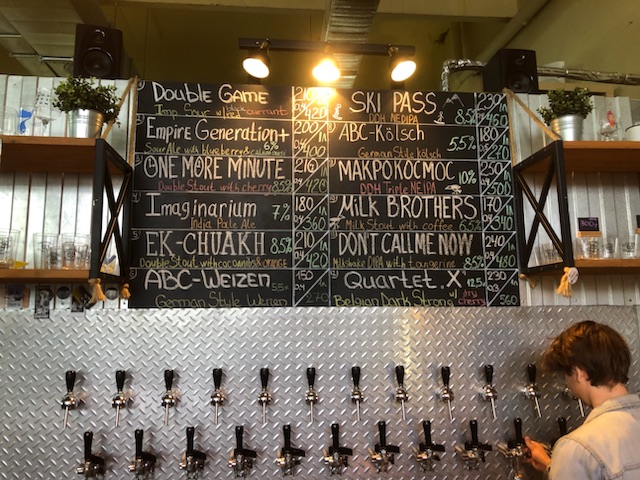 Double Game
Imp Sour w/ blackcurrant
210
420
Empire Generation+
6%
Sour Ale with blueberry &
200
400
ONE MORE MINUTE
Double Stout with cherry 8.5%
210
420
Imaginarium 7%
India Pale Ale
180
360
EK-CHUAKH 8.5%
Double Stout with coconibs & orange
210
420
ABC-Weizen 5.5%
German Style Weizen
150
270
SKI PASS 8%
DDH NEDIPA
230
460
ABC-Kölsch 5.5%
German Style kölsch
180
МАКРОКОСМОС 10%
DDH Triple NEIPA
250
500
MiLK BROTHERS
Milk Stout with coffee 6.5%
180
310
DON'T CALL ME NOW
Milkshake DIPA with tangerine 8.5%
240
480
Quartet.X 12.5%
Belgian Dark Strong w/ dry cherry
230
560